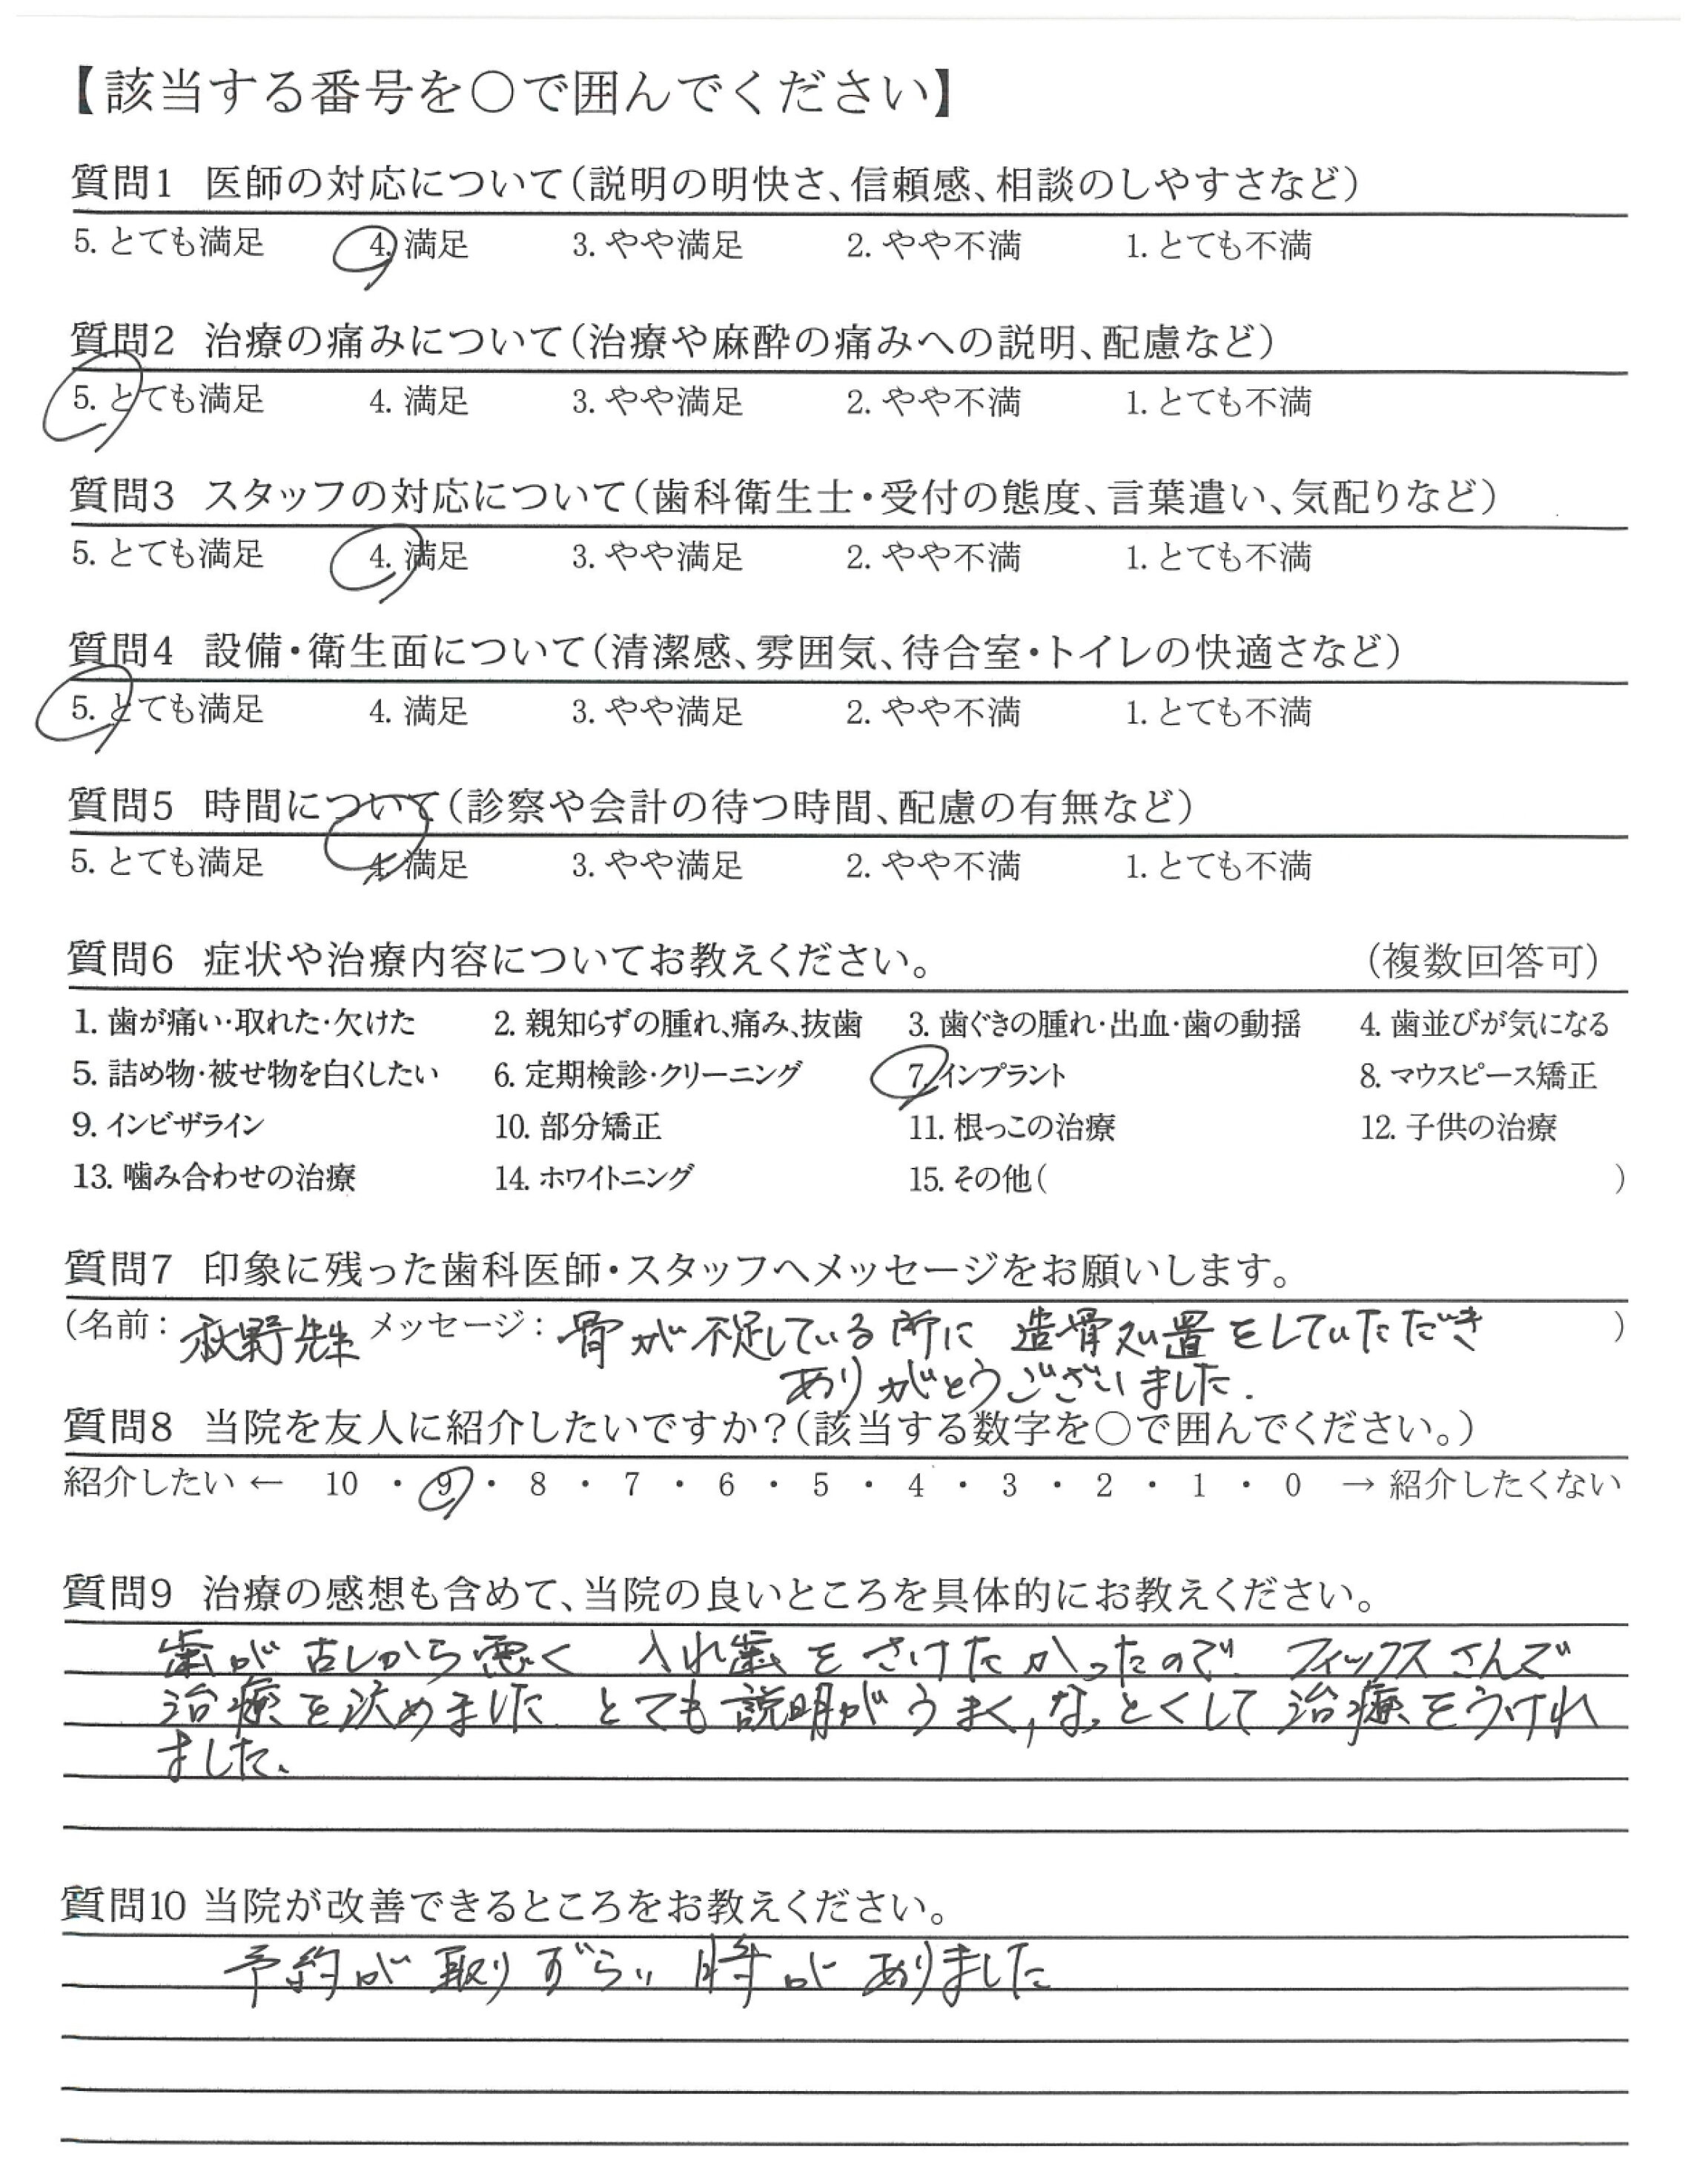 【該当する番号を○で囲んでください】
質問1 医師の対応について(説明の明快さ、信頼感、相談のしやすさなど)
5. とても満足 4. 満足 3. やや満足 2. やや不満 1. とても不満
質問2 治療の痛みについて(治療や麻酔の痛みへの説明、配慮など)
5. とても満足 4. 満足 3. やや満足 2. やや不満 1. とても不満
質問3 スタッフの対応について(歯科衛生士・受付の態度、言葉遣い、気配りなど)
5. とても満足 4. 満足 3. やや満足 2. やや不満 1. とても不満
質問4 設備・衛生面について(清潔感、雰囲気、待合室・トイレの快適さなど)
5. とても満足 4. 満足 3. やや満足 2. やや不満 1. とても不満
質問5 時間について(診察や会計の待つ時間、配慮の有無など)
5. とても満足 4. 満足 3. やや満足 2. やや不満 1. とても不満
質問6 症状や治療内容についてお教えください。 (複数回答可)
1. 歯が痛い・取れた・欠けた 2. 親知らずの腫れ、痛み、抜歯 3. 歯ぐきの腫れ・出血・歯の動揺 4. 歯並びが気になる
5. 詰め物・被せ物を白くしたい 6. 定期検診・クリーニング 7. インプラント 8. マウスピース矯正
9. インビザライン 10. 部分矯正 11. 根っこの治療 12. 子供の治療
13. 噛み合わせの治療 14. ホワイトニング 15. その他( )
質問7 印象に残った歯科医師・スタッフへメッセージをお願いします。
(名前: 秋野先生 メッセージ: 骨が不足している所に 造骨処置をしていただき )
ありがとうございました.
質問8 当院を友人に紹介したいですか?(該当する数字を○で囲んでください。)
紹介したい ← 10 ・ 9 ・ 8 ・ 7 ・ 6 ・ 5 ・ 4 ・ 3 ・ 2 ・ 1 ・ 0 → 紹介したくない
質問9 治療の感想も含めて、当院の良いところを具体的にお教えください。
歯が古しから悪く 入れ歯をさけたかったので フィックスさんで
治療を決めました とても説明がうまく,なっとくして治療をうけれ
ました、
質問10 当院が改善できるところをお教えください。
予約が取りずらい時がありました